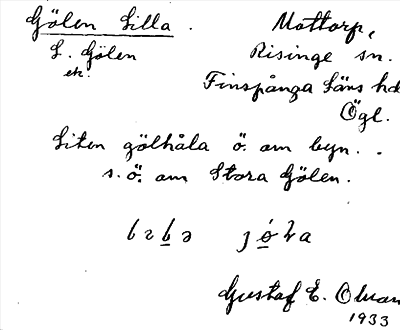 Gölen Lilla. Mottorp,
L. Gölen Risinge sn.
ek. Finspånga Läns hd
Ögl.
Liten gölhåla ö. om byn.
s.ö. om Stora Gölen.
Gustaf E.
1933